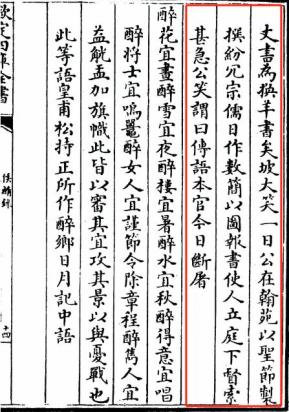 丈書為換羊書矣坡大笑一日公在翰苑以聖節製
撰紛冗宗儒日作數簡以圖報書使人立庭下督索
甚急公笑謂曰傳語本官今日斷屠
醉花宜晝醉雪宜夜醉樓宜暑醉水宜秋醉得意宜唱
醉將士宜鳴鼉醉女人宜謹節令除章程醉雋人宜
益觥盂加旗幟此皆以審其宜攻其景以與憂戰也
此等語皇甫松持正所作醉鄉日月記中語
欽定四庫全書
侯鯖録
十四